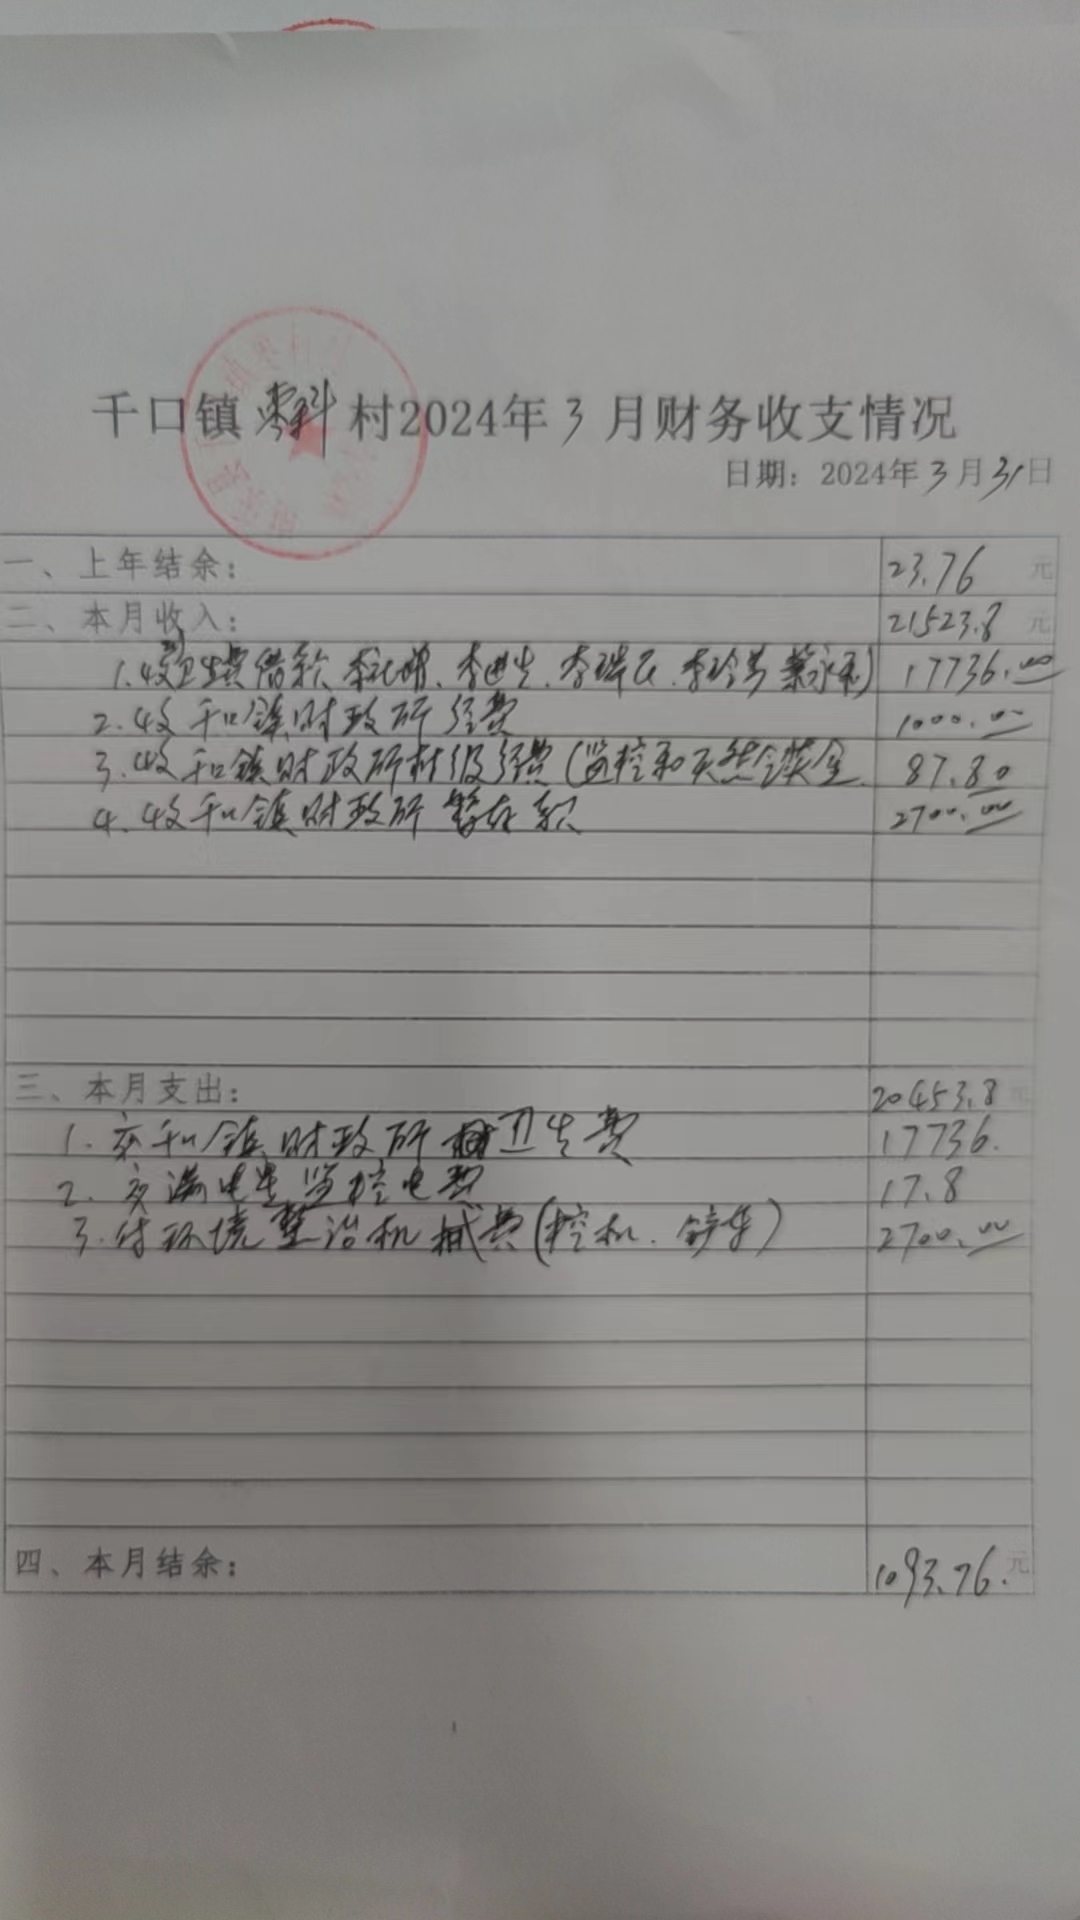 千口镇枣科村2024年3月财务收支情况
日期：2024年3月31日
一、上年结余： 23.76 元
二、本月收入： 21523.8 元
1.收卫生费借款 李 李进生、李 李 ) 17736.00
2.收千口镇财政所经费 1000.00
3.收千口镇财政所村级经费(监控和天然气奖金 87.80
4.收千口镇财政所暂存款 2700.00
三、本月支出： 20453.8 元
1.交千口镇财政所村卫生费 17736.
2.交 监控电费 17.8
3.付环境整治机械费(挖机.铲车) 2700.00
四、本月结余： 1093.76. 元